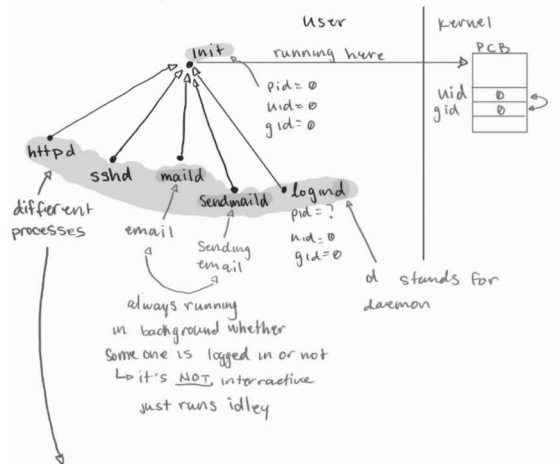 user
kernel
init
running here
PCB
pid = 0
uid = 0
gid = 0
uid 0
gid 0
httpd
sshd
maild
Sendmaild
logind
pid = ?
uid = 0
gid = 0
different
processes
email
Sending
email
d stands for
daemon
always running
in background whether
someone is logged in or not
↳ it's NOT interractive
just runs idley